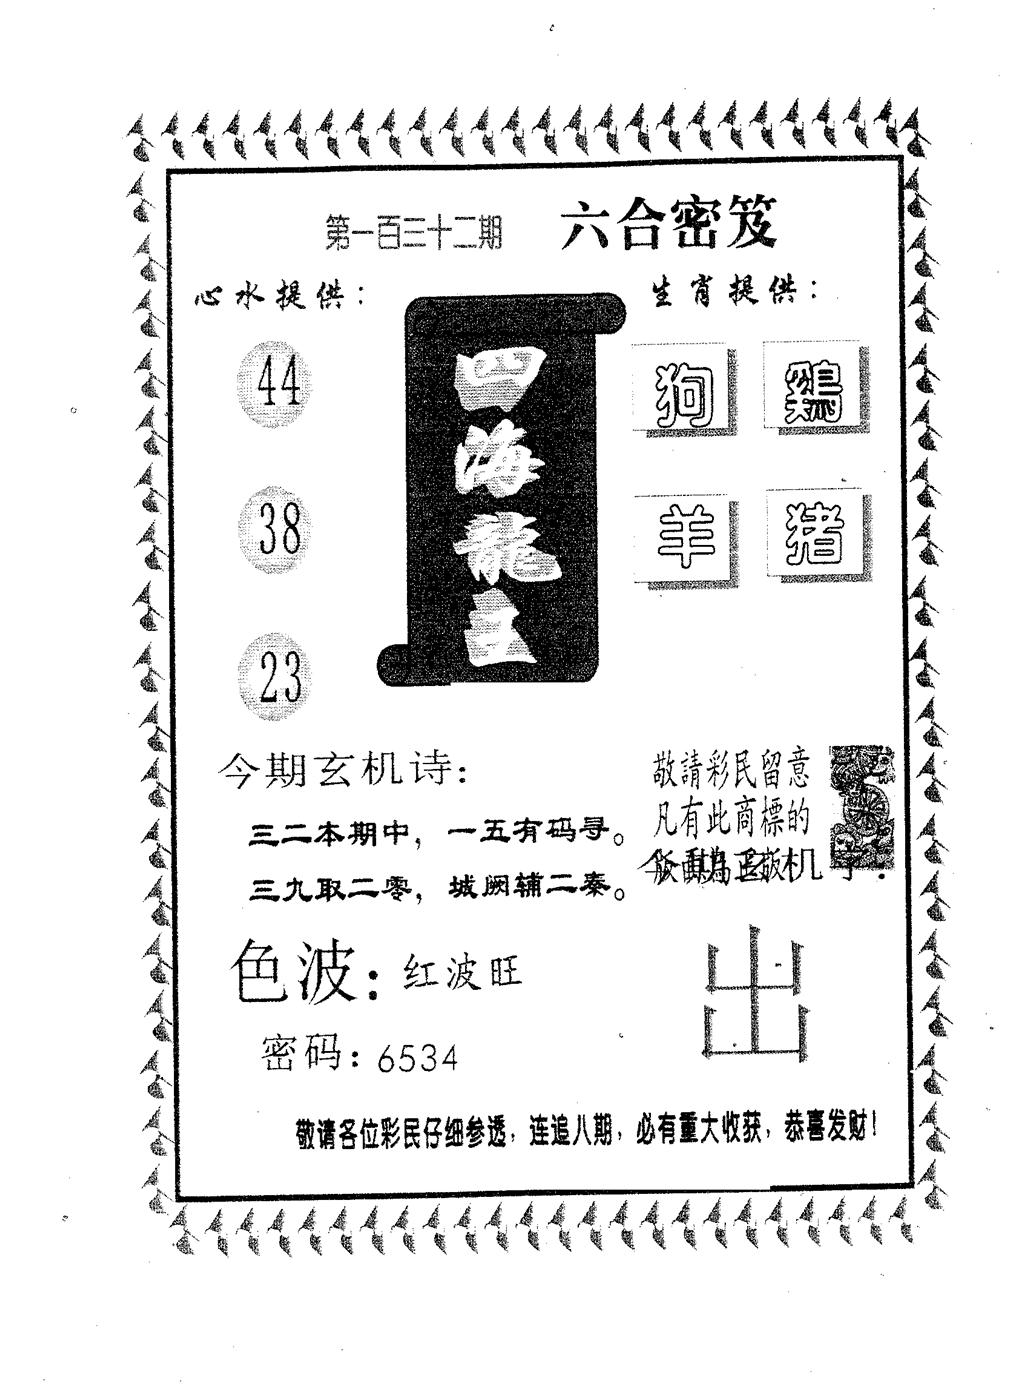 第一百三十二期 六合密笈
心水提供：
生肖提供：
44
38
23
四海龍王
狗 鷄
羊 猪
今期玄机诗：
三二本期中，一五有码寻。
三九取二零，城阙辅二秦。
敬請彩民留意
凡有此商標的
版面為正版
机
出
色波：红波旺
密码：6534
敬请各位彩民仔细参透，连追八期，必有重大收获，恭喜发财！